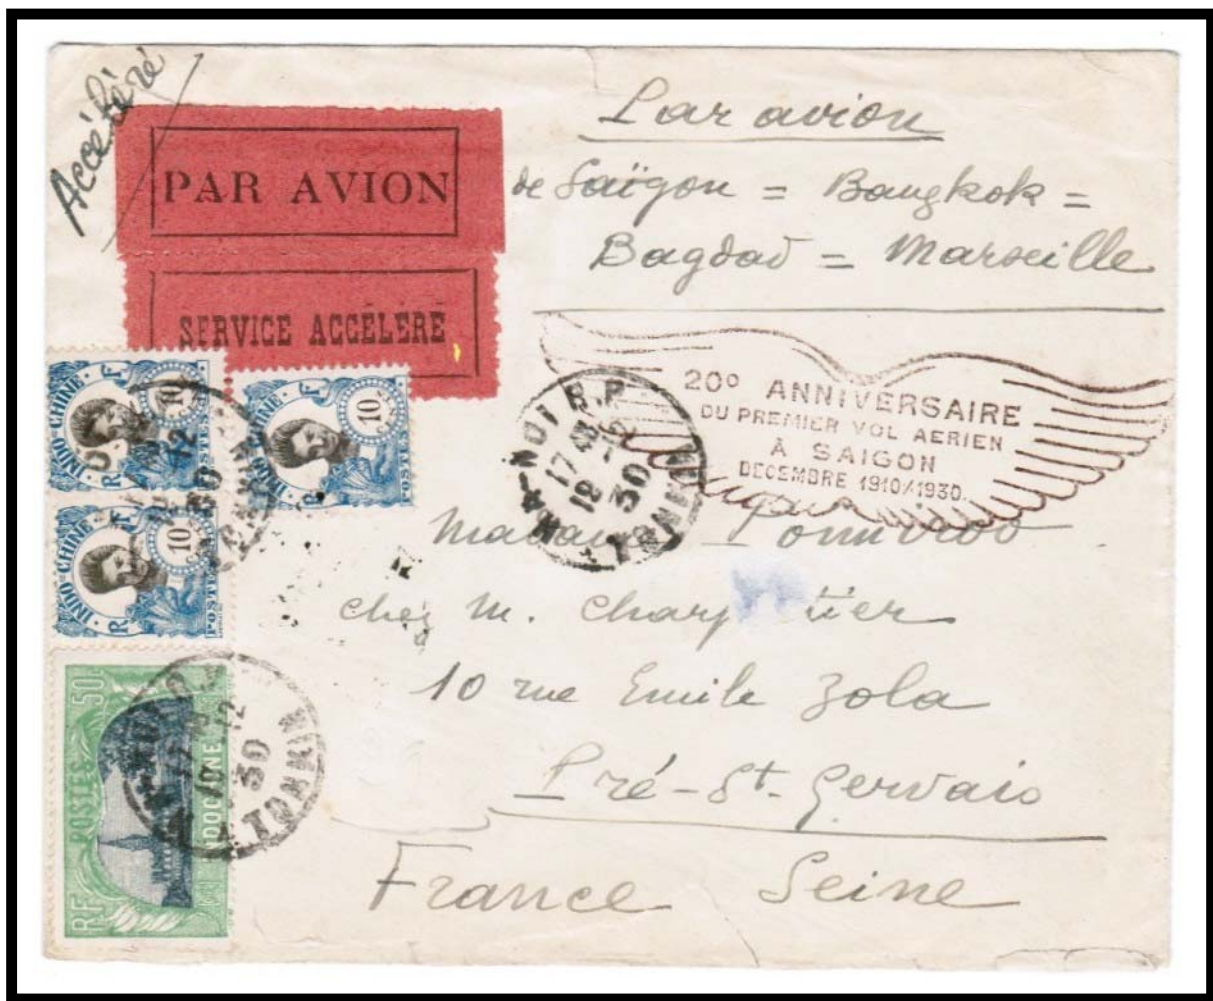 Accéléré
PAR AVION
SERVICE ACCÉLÉRÉ
Par avion
de Saïgon = Bangkok =
Bagdad = Marseille
20º ANNIVERSAIRE
DU PREMIER VOL AERIEN
À SAIGON
DECEMBRE 1910/1930
HA-NOI R.P.
17
12
30
TONKIN
INDO-CHINE
RF
10
POSTES
INDO-CHINE
RF
10
POSTES
INDO-CHINE
RF
10
POSTES
RF POSTES 50
INDOCHINE
12
30
TONKIN
Madame
chez M. Charpentier
10 rue Emile Zola
Pré-St-Gervais
France Seine